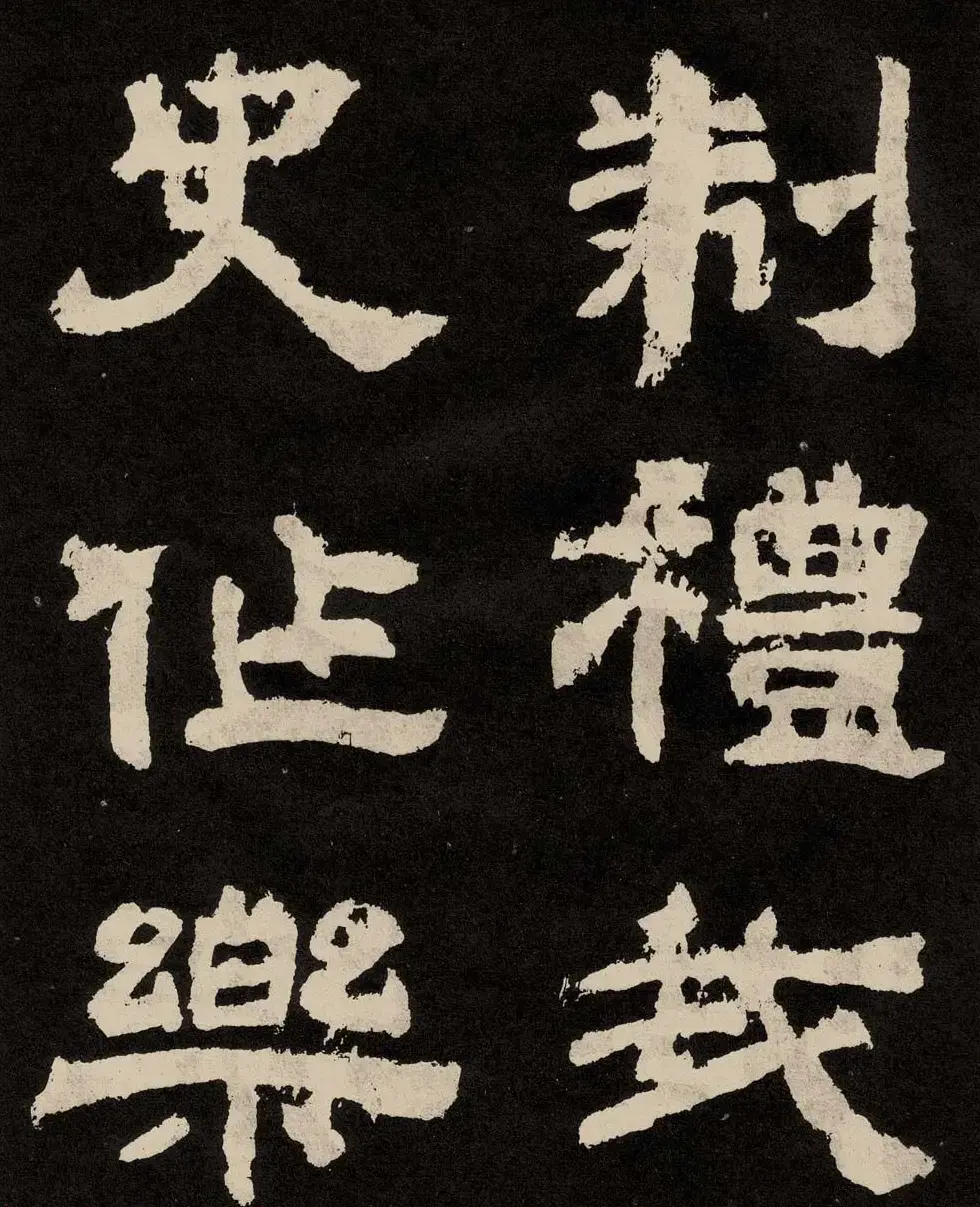 制禮
史作樂